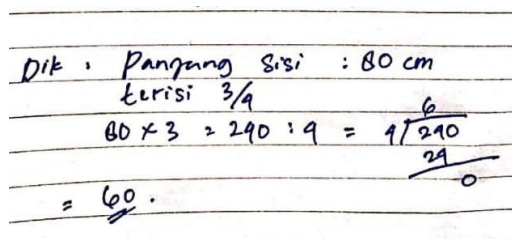 Dik : Panjang sisi : 80 cm
terisi 3/4
80 x 3 = 240 : 4 = 4/240
6
24
0
= 60.